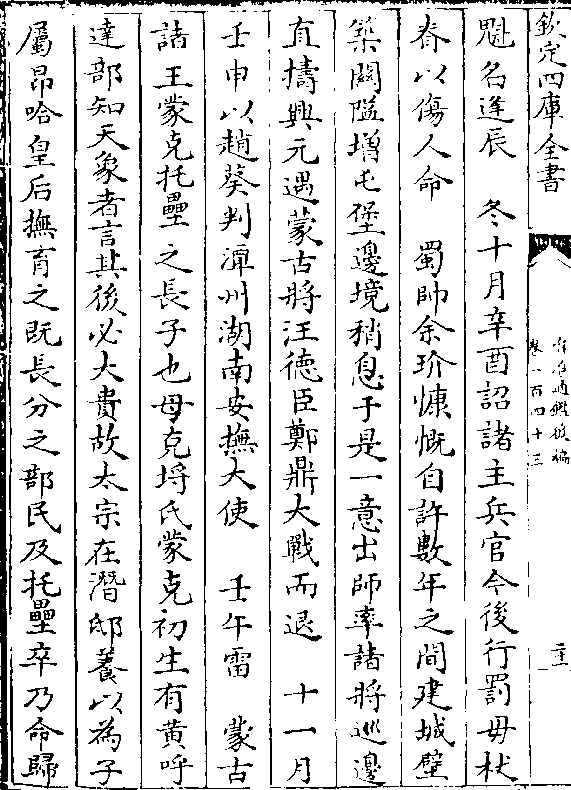 欽定四庫全書
資治通鑑後編
卷一百四十三
二十一
魁名逹辰　冬十月辛酉詔諸主兵官今後行罰毋杖
脊以傷人命　蜀帥余玠慷慨自許數年之間建城壁
築關隘增屯堡邊境稍息于是一意出師率諸將巡邊
直擣興元遇蒙古將汪德臣鄭鼎大戰而退　十一月
壬申以趙葵判潭州湖南安撫大使　壬午雷　蒙古
諸王蒙克托壘之長子也母克埒氏蒙克初生有黄呼
達部知天象者言其後必大貴故太宗在潛邸養以為子
屬昂哈皇后撫育之既長分之部民及托壘卒乃命歸